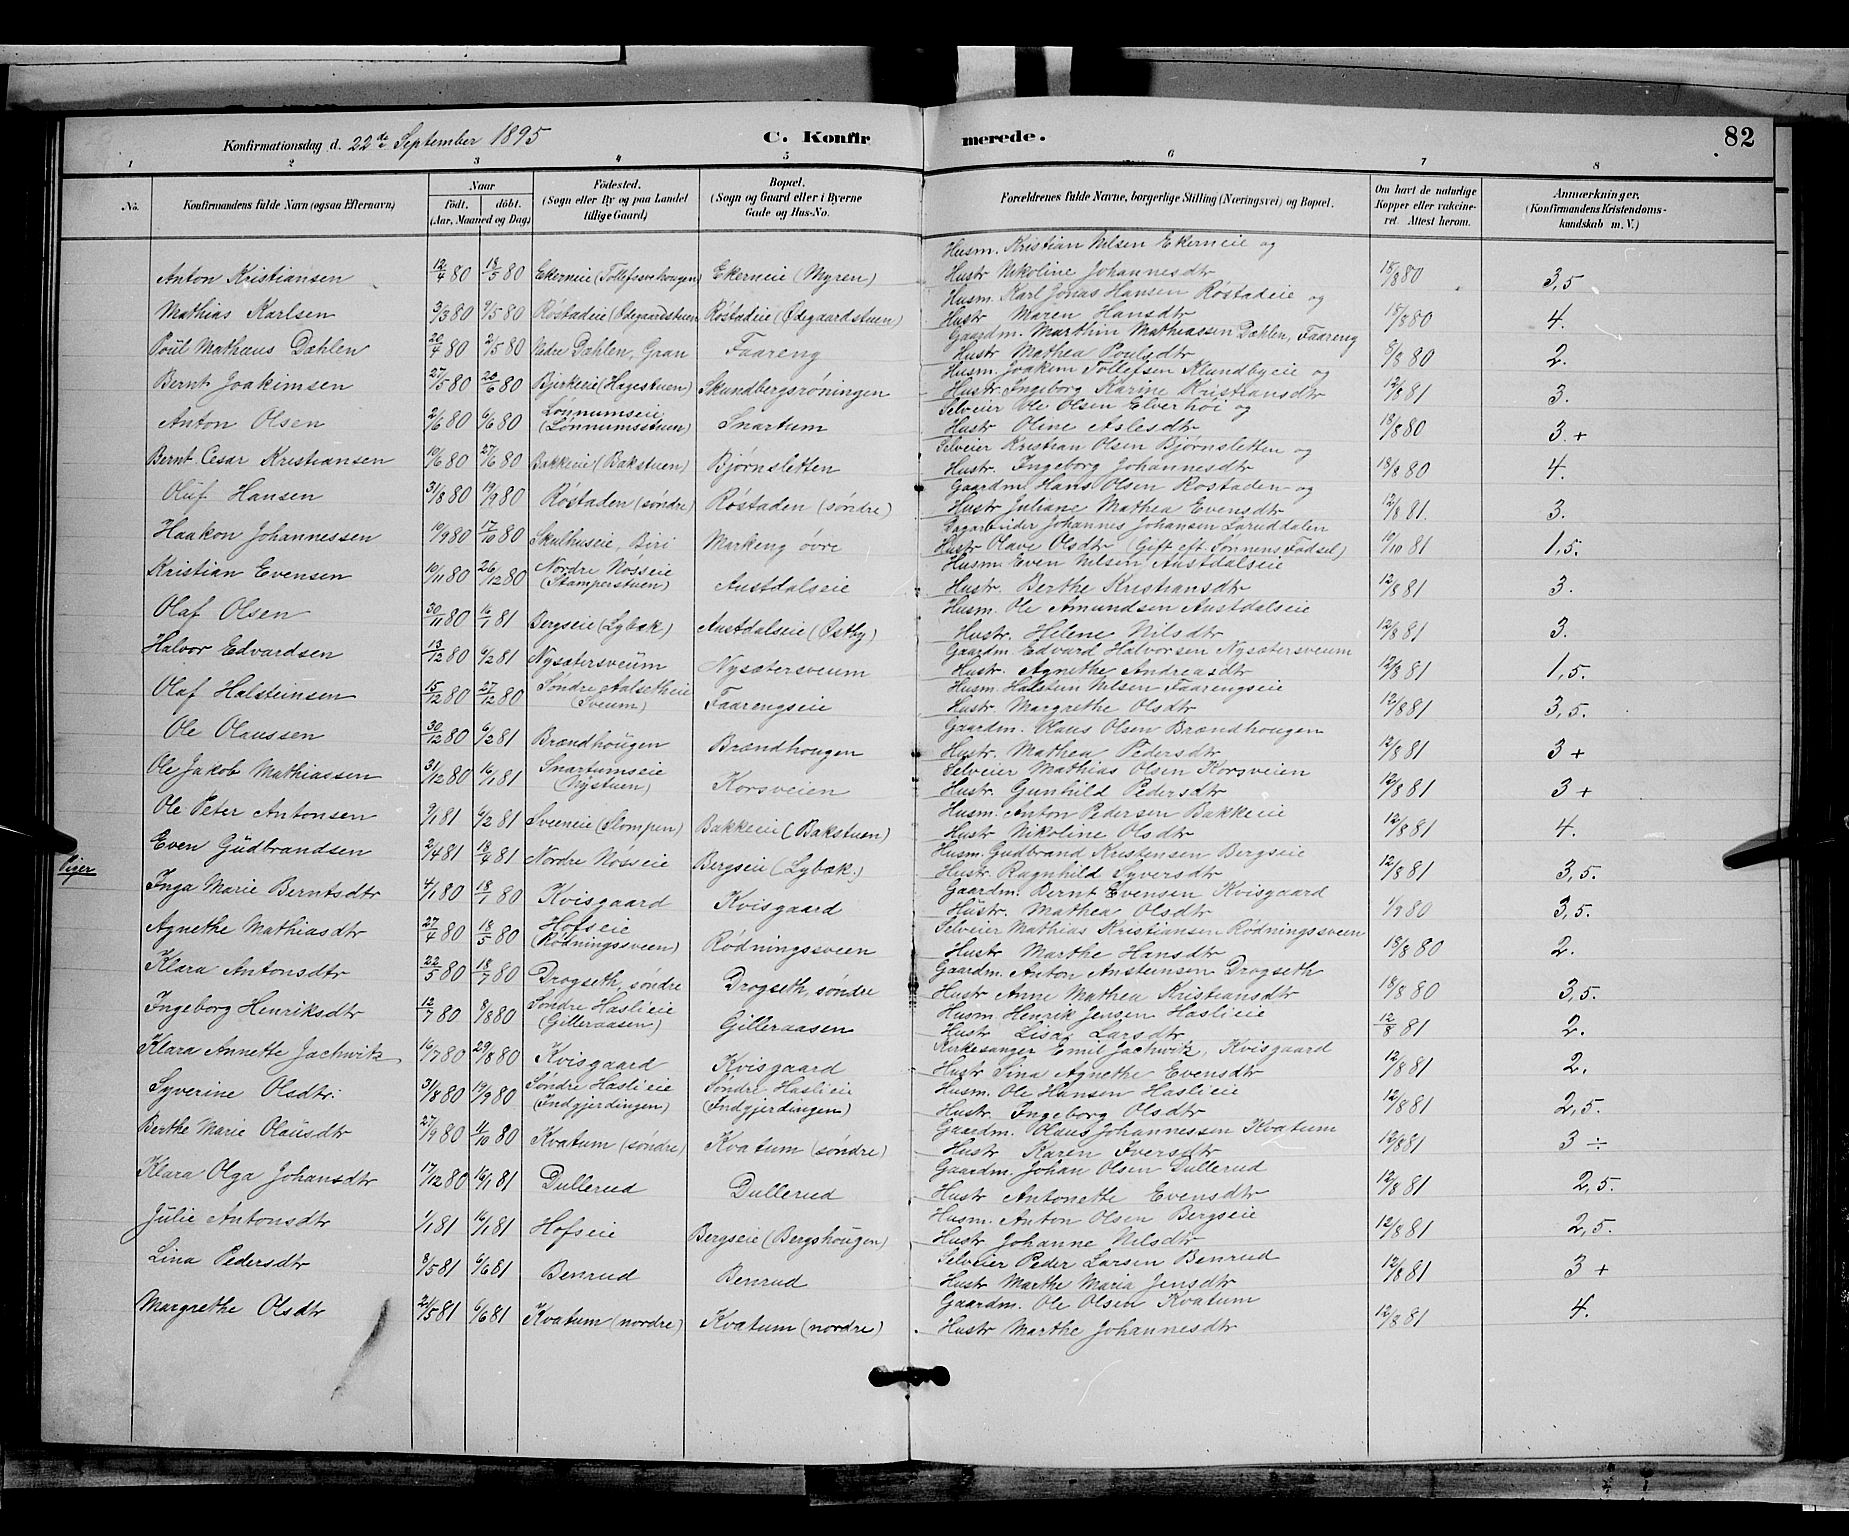 Konfirmationsdag d. 22de September 1895
C. Konfirmerede.
82
1 2 3 4 5 6 7 8
No.
Konfirmandens fulde Navn (ogsaa Efternavn)
Naar
födt. döbt.
(Aar, Maaned og Dag)
Födested.
(Sogn eller By og paa Landet
tillige Gaard)
Bopæl.
(Sogn og Gaard eller i Byerne
Gade og Hus-No.
Forældrenes fulde Navne, borgerlige Stilling (Næringsvei) og Bopæl.
Om havt de naturlige
Kopper eller vakcine-
ret. Attest herom.
Anmærkninger.
(Konfirmandens Kristendoms-
kundskab m. V.)
Husm. Kristian Nilsen Ekerneie og
Anton Kristiansen 12/4 80 13/5 80 Ekerneie (Tollefsvehougen) Ekerneie (Myren) Hustr Nikoline Johannesdtr 18/8 80 3,5
Husm. Karl Jonas Hansen Röstadeie og
Mathias Karlsen 3/3 80 9/5 80 Röstadeie (Ødegaardstuen Röstadeie (Ødegaardstuen) Hustr Maren Hansdtr 18/8 80 4.
Gaardm. Marthin Mathiassen Dæhlen, Faareng
Poul Mathæus Dæhlen 20/4 80 2/5 80 Nedre Dæhlen, Gran Faareng Hustr Mathea Poulsdtr 8/8 80 2.
Husm. Joakim Tollefsen Klundbyeie og
Bernt Joakimsen 27/5 80 20/6 80 Bjerkeie (Hagestuen) Skundbergsröningen Hustr Ingeborg Karine Kristiansdtr 12/8 81 3.
Selveier Ole Olsen Elverhöi og
Anton Olsen 2/6 80 6/6 80 Lönnumseie (Lönnumsstuen) Snartum Hustr Oline Aslesdtr 18/8 80 3.+
Selveier Kristian Olsen Bjørnsletten og
Bernt Cesar Kristiansen 10/6 80 27/6 80 Bakkeie (Bakstuen) Bjørnsletten Hustr. Ingeborg Johannesdtr 18/8 80 4.
Gaardm. Hans Olsen Röstaden og
Oluf Hansen 31/8 80 19/9 80 Röstaden (söndre) Röstaden (söndre) Hustr Juliane Mathea Evensdtr 12/8 81. 3.
Dagarbeider Johannes Johansen Lareiddalen
Haakon Johannessen 10/9 80 17/10 80 Skulhuseie, Biri Markeng övre Hustr Olave Olsdtr (Gift eft. Sønnens Fødsel) 10/10 81 1,5.
Husm. Even Nilsen Austdalseie
Kristian Evensen 10/11 80 26/12 80 Nordre Nösseie (Stamperstuen) Austdalseie Hustr. Berthe Kristiansdtr 12/8 81 3.
Husm. Ole Amundsen Austdalseie
Olaf Olsen 30/11 80 16/1 81 Bergseie (Lybæk) Austdalseie (Østby) Hustr. Helene Nilsdtr 12/8 81 3.
Gaardm. Edvard Halvorsen Nysætersveum
Halvor Edvardsen 13/12 80 6/2 81 Nysætersveum Nysætersveum Hustr. Agnethe Andreasdtr 12/8 81 1,5.
Husm. Halstein Nilsen Faarengseie
Olaf Halsteinsen 15/12 80 27/12 80 Söndre Aalsetheie (Sveum) Faarengseie Hustr. Margrethe Olsdtr 12/8 81 3,5.
Gaardm. Olaus Olsen Brændhougen
Ole Olaussen 30/12 80 6/2 81 Brændhougen Brændhougen Hustr. Mathea Pedersdtr 12/8 81 3 +
Selveier Mathias Olsen Korsveien
Ole Jakob Mathiassen 31/12 80 16/1 81 Snartumseie (Nystuen) Korsveien Hustr. Gunhild Pedersdtr 12/8 81 3 +
Husm. Anton Pedersen Bakkeie
Ole Peter Antonsen 9/1 81 6/2 81 Sveeneie (Slompen) Bakkeie (Bakstuen) Hustr Nikoline Olsdtr 12/8 81 4.
Husm. Gudbrand Kristensen Bergseie
Even Gudbrandsen 2/4 81 18/4 81 Nordre Nösseie Bergseie (Lybæk.) Hustr. Ragnhild Syversdtr 12/8 81 3,5.
Piger
Gaardm. Bernt Evensen Kvisgaard
Inga Marie Berntsdtr 4/1 80 18/7 80 Kvisgaard Kvisgaard Hustr. Mathea Olsdtr 1/9 80 3,5.
Selveier Mathias Kristiansen Rödningssveen
Agnethe Mathiasdtr 27/4 80 18/5 80 Hofseie (Rödningssveen) Rödningssveen Hustr Marthe Hansdtr 18/8 80 2.
Gaardm. Anton Austensen Drogseth
Klara Antonsdtr 22/5 80 18/7 80 Drogseth, söndre Drogseth, söndre Hustr Anne Mathea Kristiansdtr 18/8 80 3,5.
Husm. Henrik Jensen Haslieie
Ingeborg Henriksdtr 12/7 80 8/8 80 Söndre Haslieie (Gilleraasen) Gilleraasen Hustr Lisa Larsdtr 12/8 81 2.
Kirkesanger Emil Jachwitz, Kvisgaard
Klara Annette Jachwitz 16/7 80 29/8 80 Kvisgaard Kvisgaard Hustr Sina Agnethe Evensdtr 12/8 81 2.
Husm. Ole Hansen Haslieie
Syverine Olsdtr. 31/8 80 19/9 80 Söndre Haslieie (Indgjerdingen) Söndre Haslieie (Indgjerdingen) Hustr. Ingeborg Olsdtr 12/8 81 2,5.
Gaardm. Olaus Johannessen Kvatum
Berthe Marie Olausdtr 27/9 80 11/10 80 Kvatum (söndre) Kvatum (söndre) Hustr Karen Iversdtr 12/8 81 3 ÷
Gaardm. Johan Olsen Dullerud
Klara Olga Johansdtr 17/12 80 16/1 81 Dullerud Dullerud Hustr Antonette Evensdtr 12/8 81 2,5.
Husm. Anton Olsen Bergseie
Julie Antonsdtr 1/1 81 16/1 81 Hofseie Bergseie (Bergshougen) Hustr Johanne Nilsdtr 12/8 81 2,5
Selveier Peder Larsen Benrud
Lina Pedersdtr 8/5 81 6/6 81 Benrud Benrud Hustr Marthe Maria Jensdtr 12/8 81 3 +
Gaardm. Ole Olsen Kvatum
Margrethe Olsdtr 21/5 81 6/6 81 Kvatum (nordre) Kvatum (nordre) Hustr Marthe Johannesdtr 12/8 81 4.